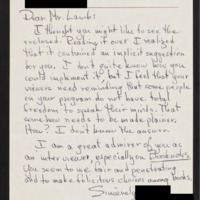 Dear Mr. Lamb:
I thought you might like to see the
enclosed. Reading it over I realized
that it contained an implicit suggestion
for you. I don't quite know how you
could implement it, but I feel that your
viewers need reminding that some people
on your program do not have total
freedom to speak their minds. That
somehow needs to be made plainer.
How? I don't know the answer.
I am a great admirer of you as
an interviewer, especially on Booknotes.
You seem to me fair and penetrating
and to make felicitous choices among books.
Sincerely